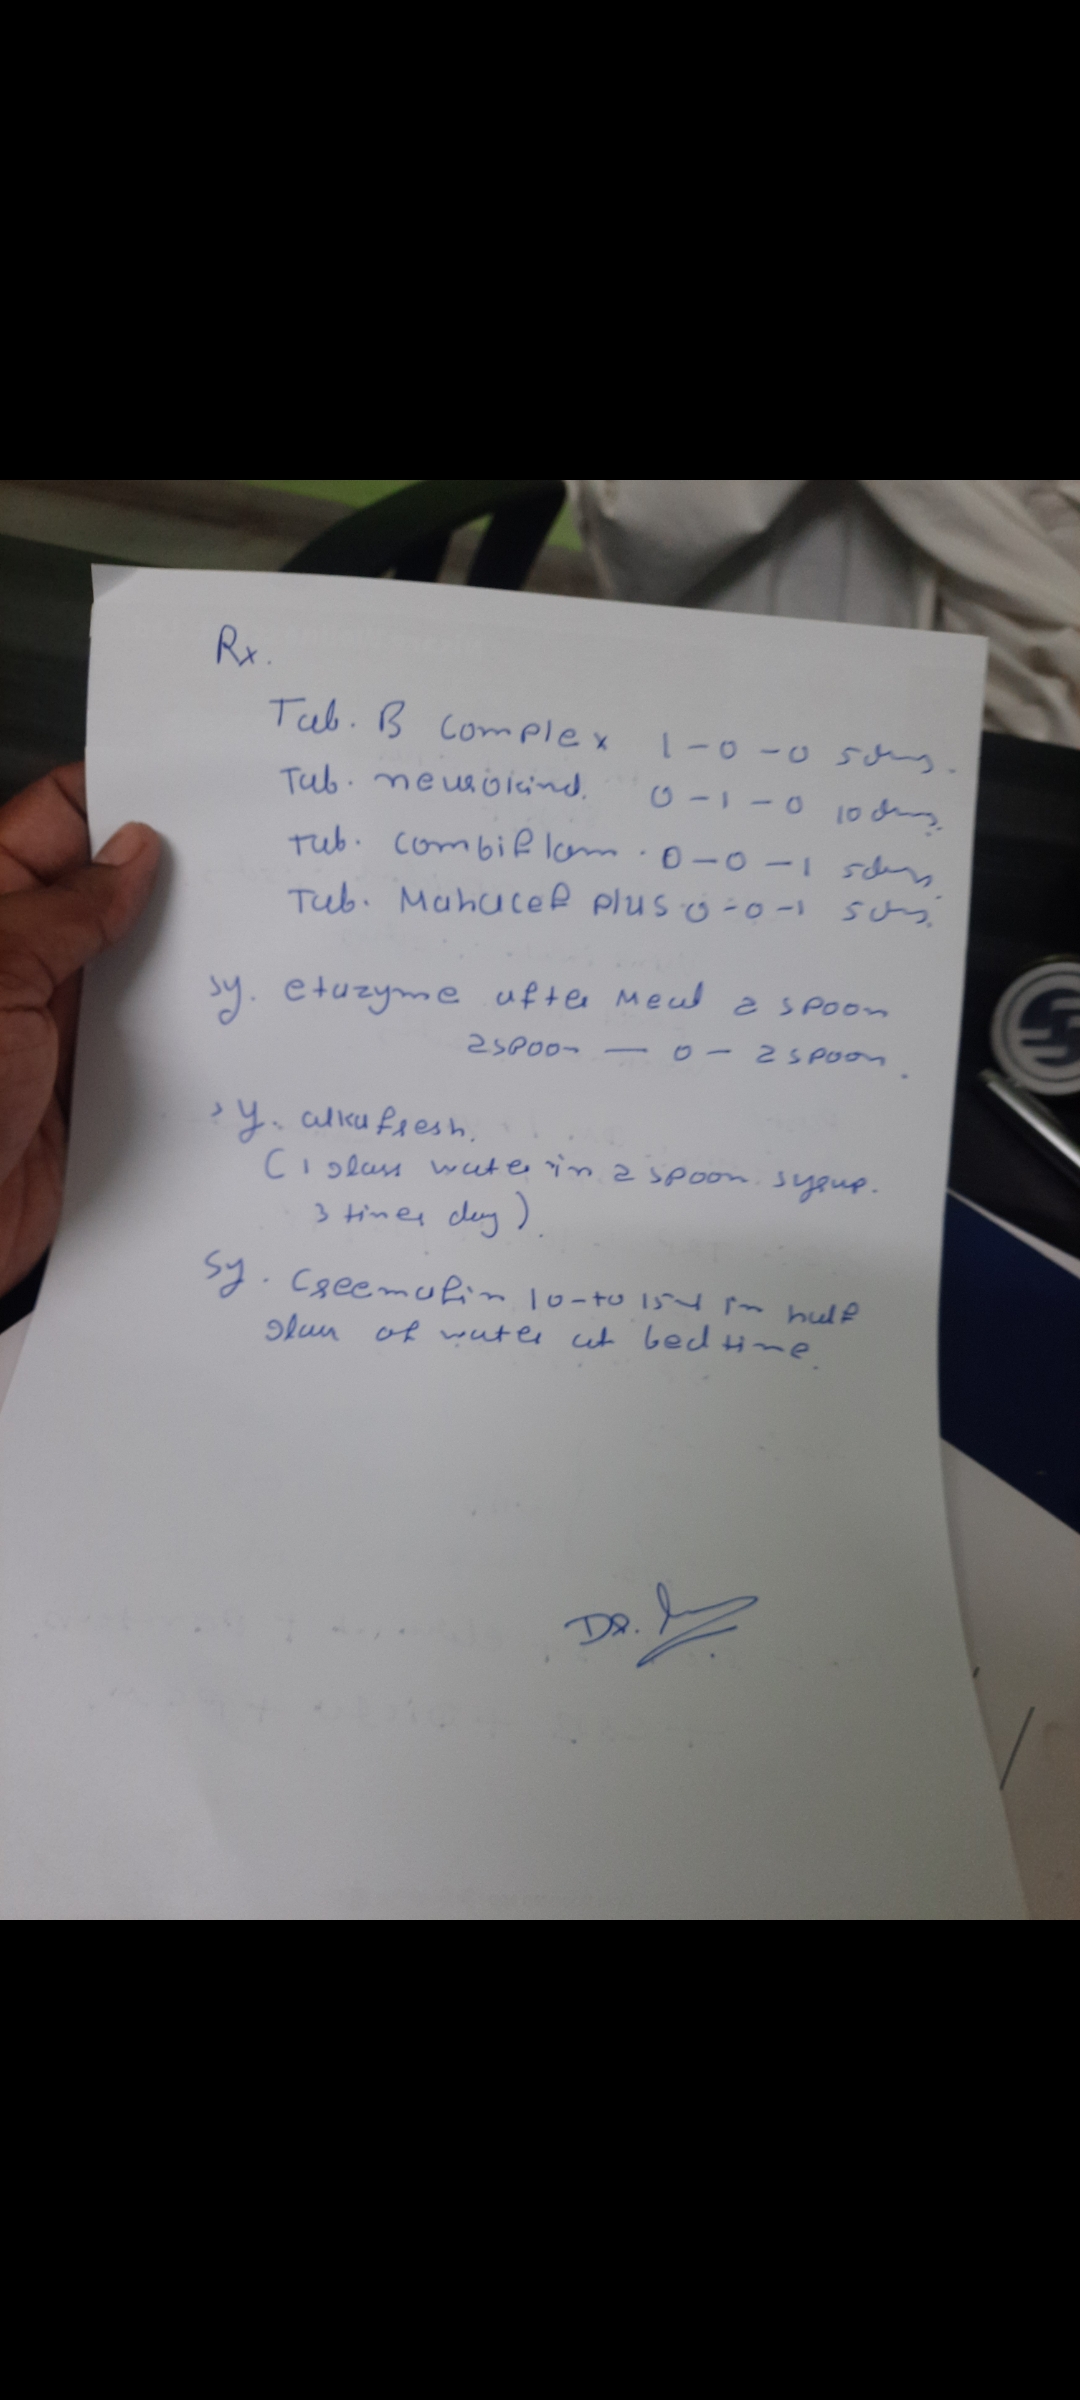 Rx.
Tab. B complex 1-0-0 5 days.
Tab. neurokind. 0-1-0 10 days.
Tab. Combiflam. 0-0-1 5 days.
Tab. Mahacef plus 0-0-1 5 days.
Sy. etazyme after Meal 2 spoon
2 spoon — 0 — 2 spoon.
Sy. alkafresh.
(1 glass water in 2 spoon syrup.
3 times day).
Sy. Creemafin 10-to 15 ml in half
glass of water at bed time.
Dr.